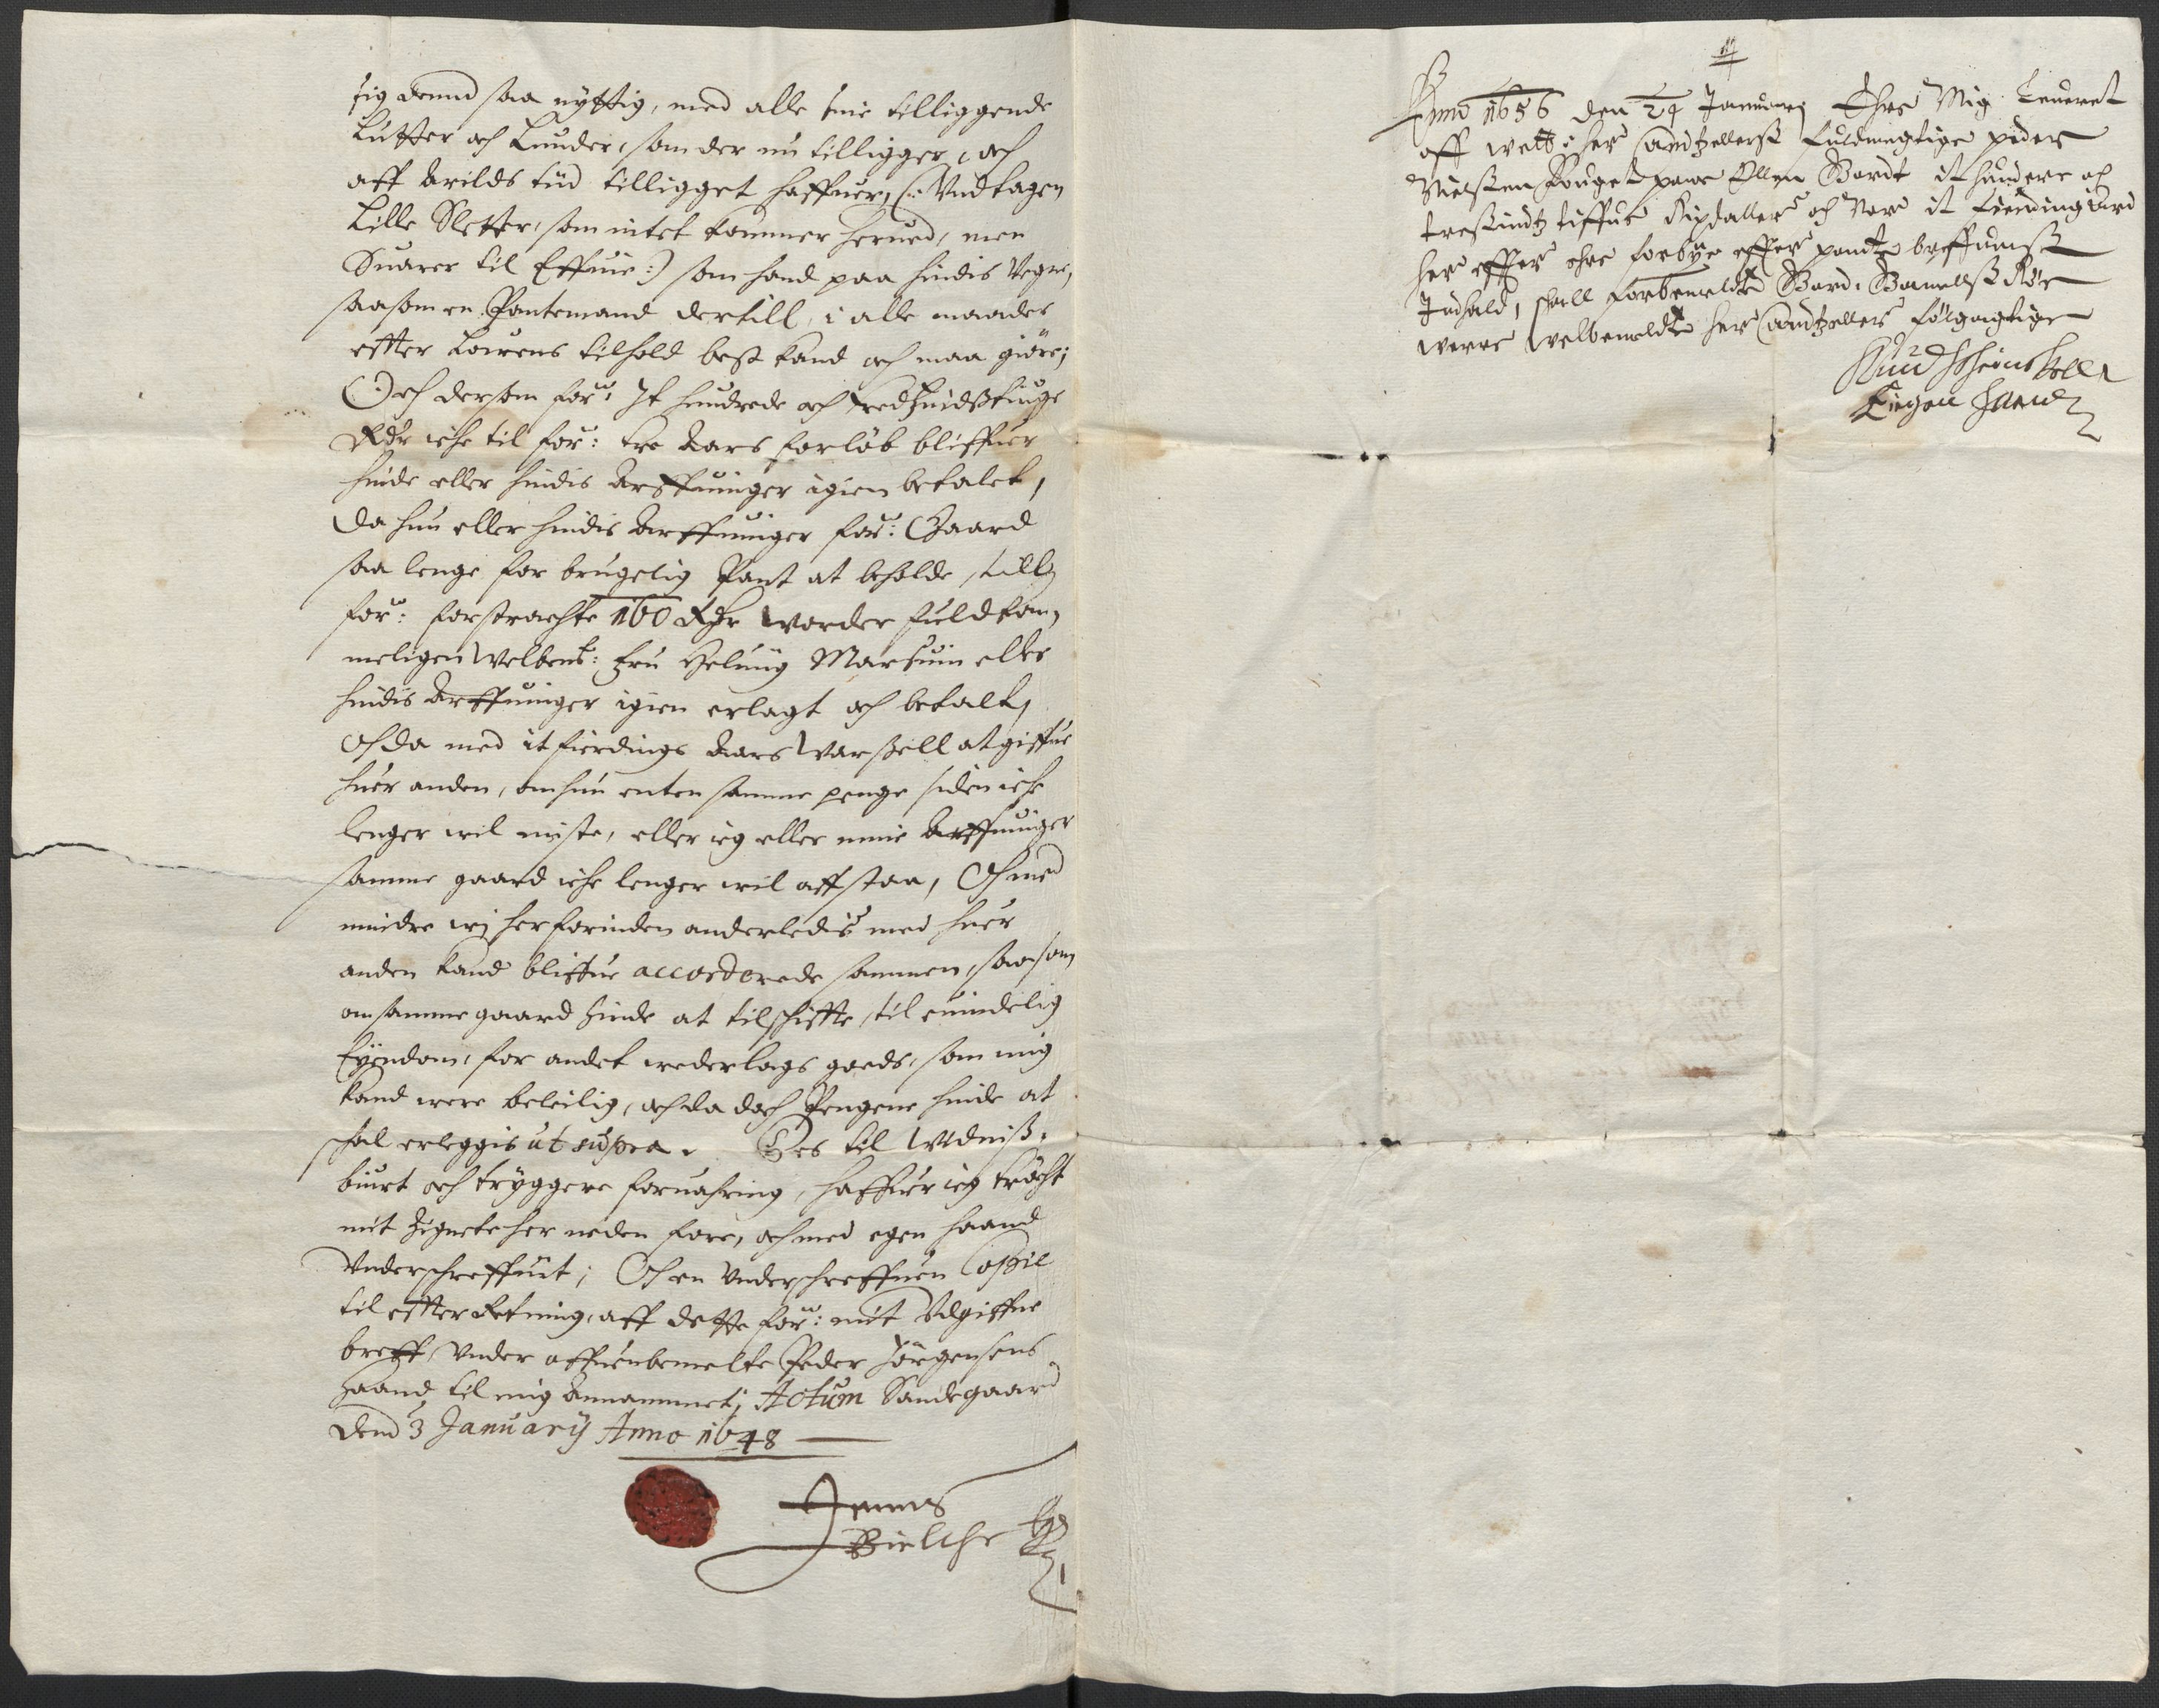 sig dennd saa nyttig, med alle sine tilliggende
Lutter och Lunder, som der nu tilligger, och
aff Arilds tiid tilligget haffuer, (: Vndtagen
Lille Sletter, som intet kommer herued, men
Suarer til Effuie:) som hand paa hindis Vegne,
saasom en Pantemand dertill, i alle maader
effter Lowens tilhold best kand och maa giöre;
Och dersom for: It hundrede och tredsindstiuge
Rdr iche til for: tre Aars forlöb bliffuer
hinde eller hindis Arffuinger igien betalet,
Da hun eller hindis Arffuinger for: Gaard
saa lenge for brugelig Pant at beholde, till
for: forstrachte 160 Rdr worder fuldkom,
meligen Welbemt: Fru Helvig Marsuin eller
hindis Arffuinger igien erlagt och betalt,
Och da med it fierdings Aars Warsell at giffue
huer anden, om hun enten samme penge siden iche
lenger wil miste, eller ieg eller mine Arffuinger
samme gaard iche lenger wil affstaa, Och med
mindre wi her forinden anderledis med huer
anden kand bliffue accorderede sammen, saasom
om samme gaard hinde at tilschiffte, til euindelig
Eyendom, for andet wederlags goeds, som mig
kand were beleilig, och da doch Pengene hinde at
schal erleggis ut supra. Des til Widnis,
biurt och tryggere foruahring, haffuer ieg tröcht
mit Zignete her neden fore, och med egen haand
Vnderschreffuit; Och en Vnderschreffuen Copie
til effterretning, aff dette for: mit Udgiffne
breff, Vnder offuenbemelte Peder Jörgensens
Haand til mig Annammet; Actum Sandegaard
Dend 3 Januarij Anno 1648
Jenns
Bielche
Anno 1656 den 24 Januarij Ehre Mig Leueret
aff welb: her Cantzellers fuldmegtige peder
Nielssen Fouget paa Ellin Gordt it hundere och
tressindtz tiffue Rixdaller och Nor it fierding Aars
her effter ehre forbye effter pantte breffuens
Indhold, schall forbemeldte Gord
werre welbemeldte her Cantzeller fölgagtige
Egen Haand